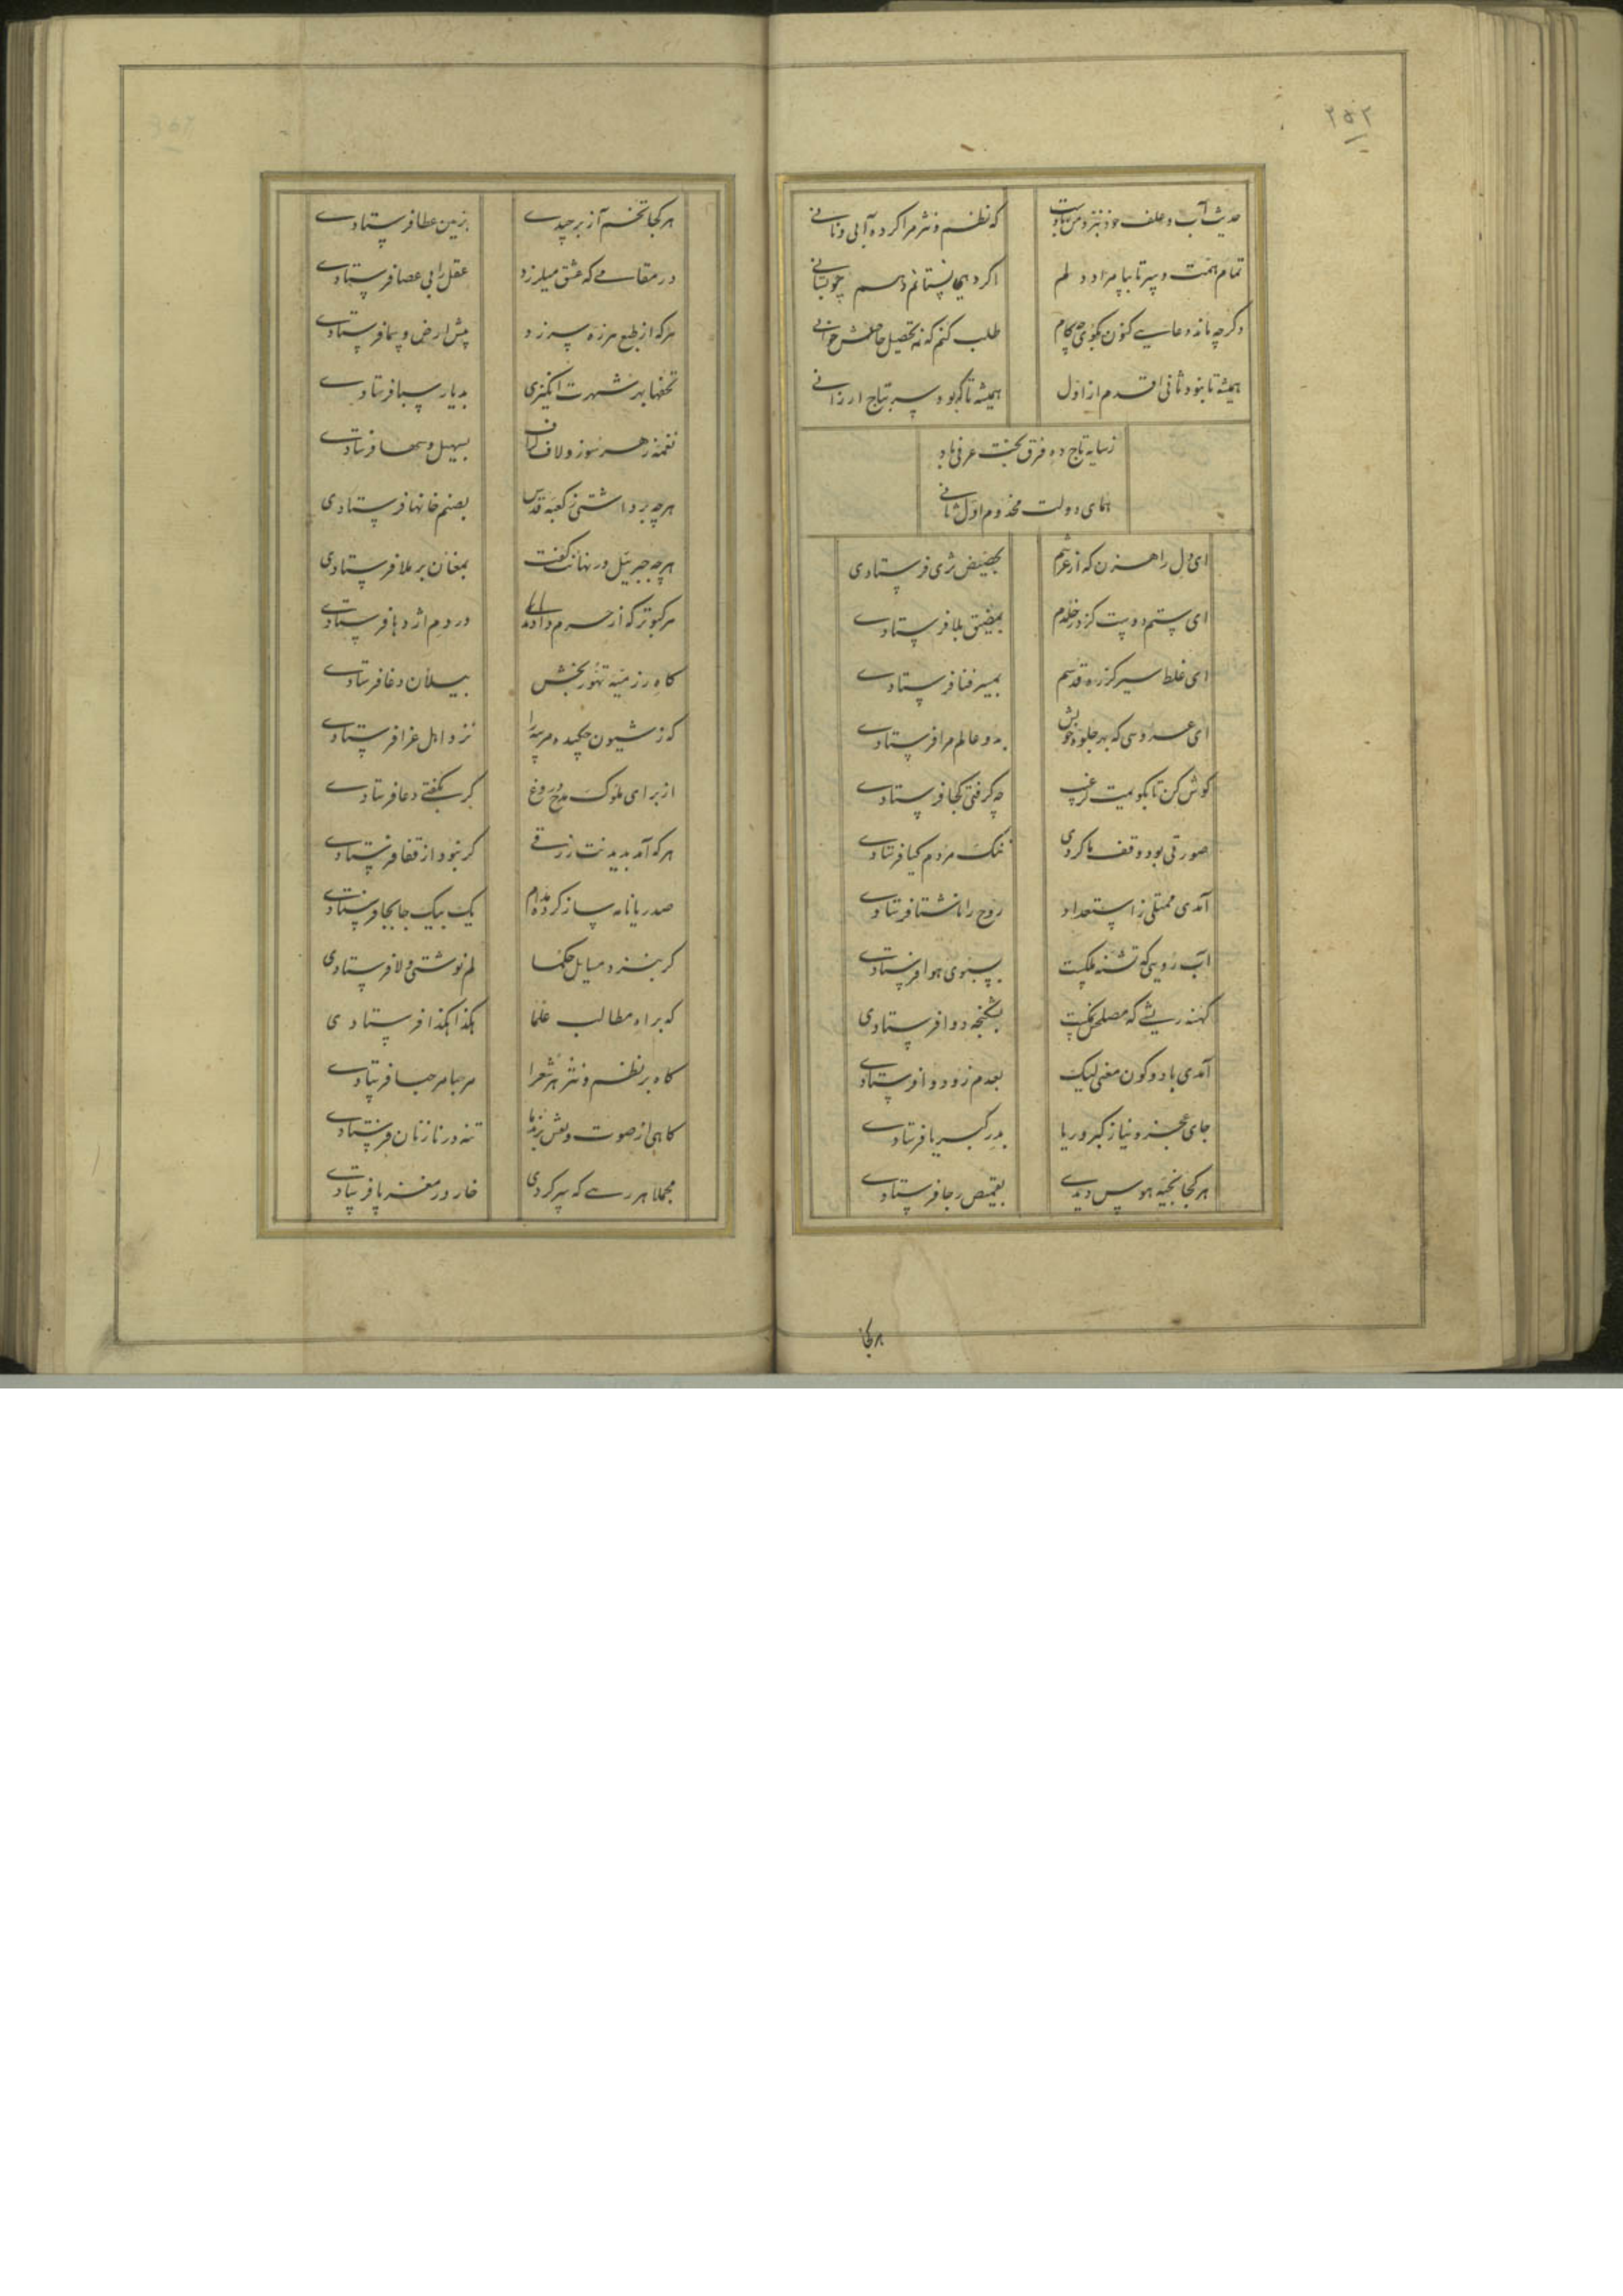 ۲۵۲
حدیث آب و علف خود نبرد من بادست که نظم و نثر مرا کرده آبی و نانی
تمام همت و سیر تا بپا مراد دلم اگر دهی نستانم دهم چو بستانی
دگر چه ماند دعایی کنون بگوی چکام طلب کنم که نه تحصیل حاصلش خوانی
همیشه تا نبود ثانی اقدم از اول همیشه تا که بود سر بتاج ارزانی
ز سایه تاج ده فرق بخت عرفی باد
همای دولت مخدوم اول ثانی
ای دل راهزن که از عرشم بحضیض ثری فرستادی
ای ستم دوست کز در خلدم بمضیق بلا فرستادی
ای غلط سیر کز ره قدسم بمسیر فنا فرستادی
ای عروسی که بهر جلوه خویش بدو عالم مرا فرستادی
گوش کن تا بگویمت عرفی چه گرفتی کجا فرستادی
صورتی بود وقف ما کردی ننگ مردم گیا فرستادی
آمدی ممتلی ز استعداد روح را ناشتا فرستادی
آب رویی که تشنه ملکست بسبوی هوا فرستادی
کهنه ریشی که مصلحش بخست بشکنجه دوا فرستادی
آمدی با دو کون معنی لیک بعدم زود وا فرستادی
جای عجز و نیاز کبر و ریا بدر کبریا فرستادی
هر کجا بخیه هوس دیدی بقمیص رجا فرستادی
هر کجا
هر کجا تخم آز برچیدی بزمین عطا فرستادی
در مقامی که عشق میلرزد عقل را بی عصا فرستادی
هر که از طبع هرزه سر زد پیش ارض و سما فرستادی
تحفها بهر شهرت انگیزی بدیار سبا فرستادی
نغمه زهره سوز و لاف گزاف بسهیل و سها فرستادی
هر چه برداشتی ز کعبه قدس بصنم خانها فرستادی
هر چه جبرئیل در نهانت گفت بمغان بر ملا فرستادی
هر کبوتر که از حرم دادند در دم اژدها فرستادی
گاه رزمیه تهور بخش بیلان دغا فرستادی
که ز شیون چکیده مرثیه را نزد اهل عزا فرستادی
از برای ملوک مدح دروغ گر بگفتی دعا فرستادی
هر که آمد بدیدنت زرقی گر نبود از قفا فرستادی
صد ریانامه ساز کرده مدام یک بیک جابجا فرستادی
گر بنزد مسایل حکما لم نوشتی و لا فرستادی
که براه مطالب علما هکذا هکذا فرستادی
گاه بر نظم و نثر هر شعرا مرحبا مرحبا فرستادی
گاهی از صوت و نقش بزمها تنه در نازنان فرستادی
مجملا هر رهی که سر کردی خار در مغز پا فرستادی